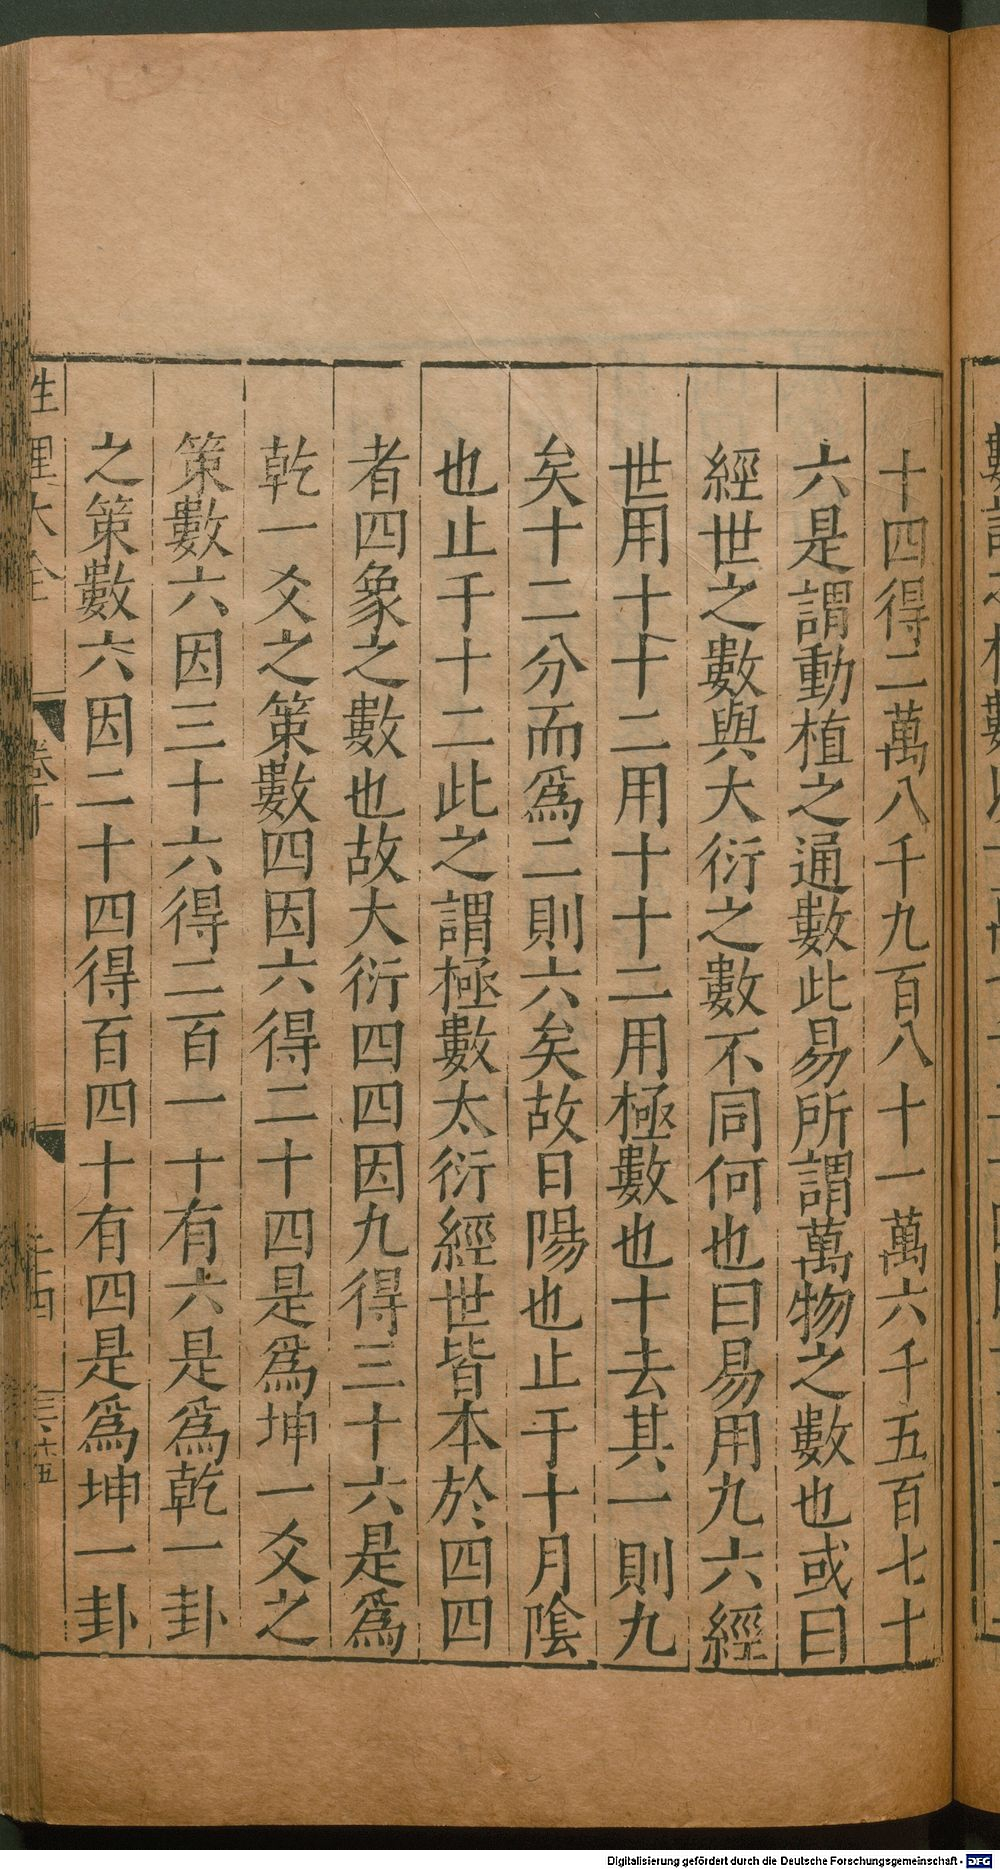 十四得二萬八千九百八十一萬六千五百七十
六是謂動植之通數此易所謂萬物之數也或曰
經世之數與大衍之數不同何也曰易用九六經
世用十十二用十十二用極數也十去其一則九
矣十二分而爲二則六矣故日陽也止于十月陰
也止于十二此之謂極數太衍經世皆本於四四
者四象之數也故大衍四四因九得三十六是爲
乾一爻之策數四因六得二十四是爲坤一爻之
策數六因三十六得二百一十有六是爲乾一卦
之策數六因二十四得百四十有四是爲坤一卦
性理大全
卷十
三六五
Digitalisierung gefördert durch die Deutsche Forschungsgemeinschaft - DFG